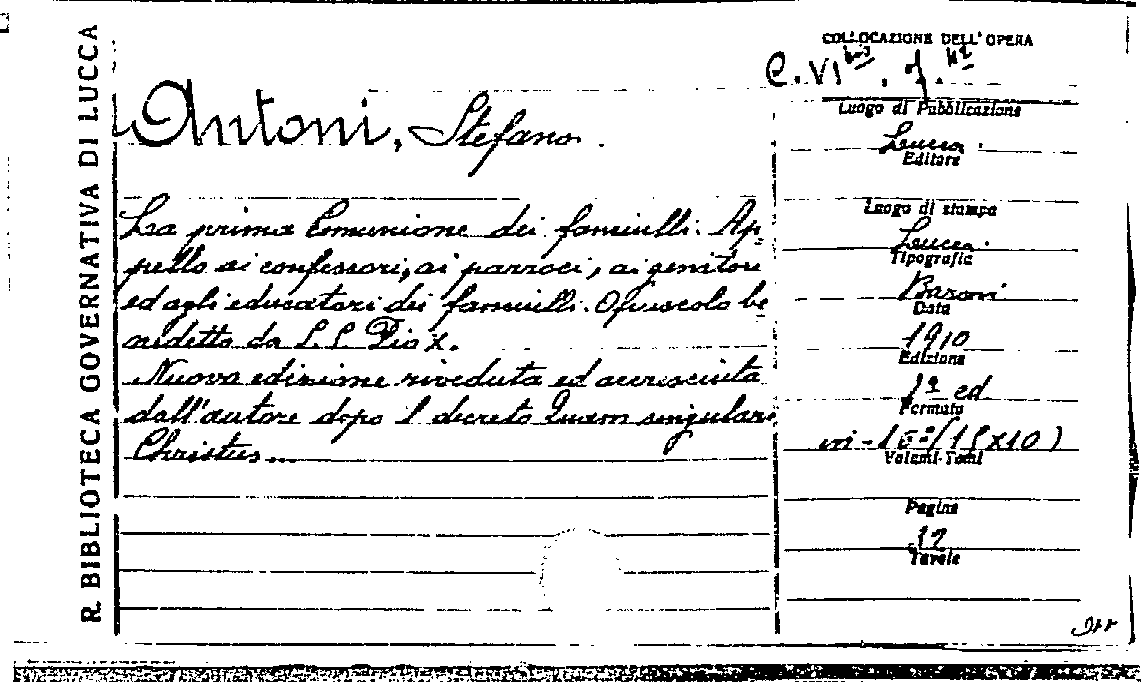 R. BIBLIOTECA GOVERNATIVA DI LUCCA
Antoni, Stefano.
La prima Comunione dei fanciulli. Ap-
pello ai confessori, ai parroci, ai genitori
ed agli educatori dei fanciulli. Opuscolo be
nedetto da S. S. Pio X.
Nuova edizione riveduta ed accresciuta
dall'autore dopo l decreto Quam singulari
Christus...
COLLOCAZIONE DELL'OPERA
C. VI bis
Luogo di Pubblicazione
Lucca.
Editore
Luogo di stampa
Lucca.
Tipografia
Baroni
Data
1910
Edizione
1ª ed
Formato
in-16º (15x10)
Volumi-Tomi
Pagine
12
Tavole